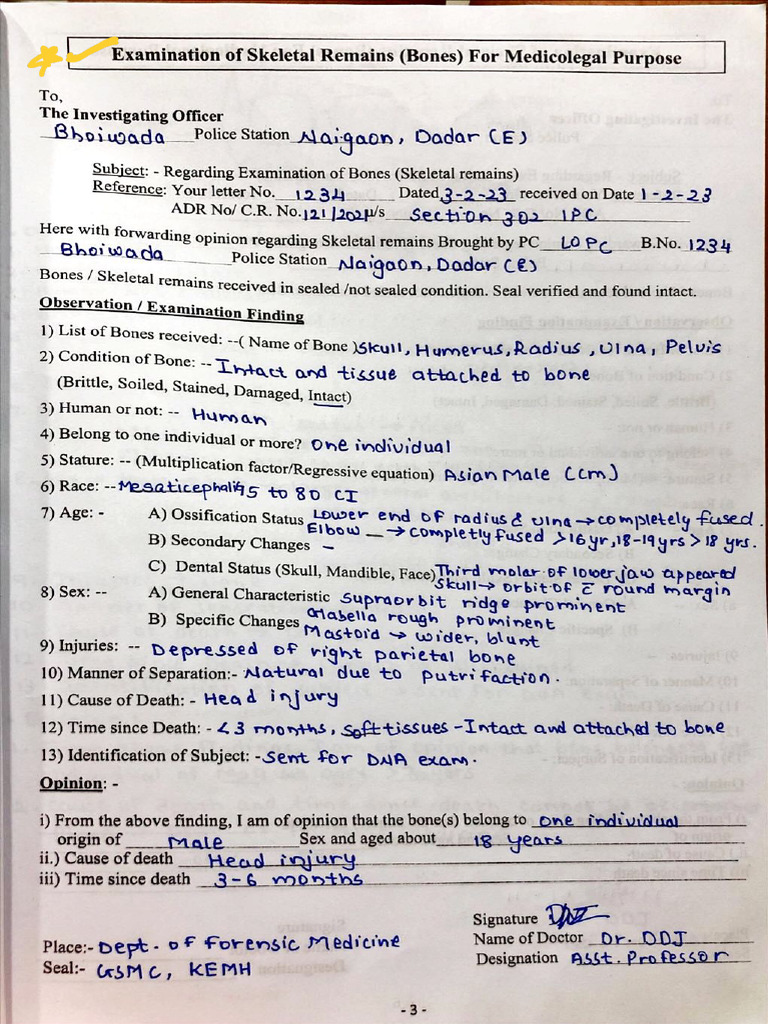 Examination of Skeletal Remains (Bones) For Medicolegal Purpose
To,
The Investigating Officer
Bhoiwada Police Station Naigaon, Dadar (E)
Subject: - Regarding Examination of Bones (Skeletal remains)
Reference: Your letter No. 1234 Dated 3-2-23 received on Date 1-2-23
ADR No/ C.R. No. 121/2021 u/s Section 302 IPC
Here with forwarding opinion regarding Skeletal remains Brought by PC LOPC B.No. 1234
Bhoiwada Police Station Naigaon, Dadar (E)
Bones / Skeletal remains received in sealed /not sealed condition. Seal verified and found intact.
Observation / Examination Finding
1) List of Bones received: --( Name of Bone ) Skull, Humerus, Radius, Ulna, Pelvis
2) Condition of Bone: -- Intact and tissue attached to bone
(Brittle, Soiled, Stained, Damaged, Intact)
3) Human or not: -- Human
4) Belong to one individual or more? One individual
5) Stature: -- (Multiplication factor/Regressive equation) Asian Male (cm)
6) Race: -- Mesaticephalic 75 to 80 CI
7) Age: - A) Ossification Status Lower end of radius & ulna → completely fused.
Elbow — → completly fused >16yr, 18-19yrs > 18 yrs.
B) Secondary Changes –
C) Dental Status (Skull, Mandible, Face) Third molar of lower jaw appeared
8) Sex: -- A) General Characteristic Skull → orbit of c̄ round margin
supraorbit ridge prominent
B) Specific Changes Glabella rough prominent
Mastoid → wider, blunt
9) Injuries: -- Depressed of right parietal bone
10) Manner of Separation:- Natural due to putrifaction.
11) Cause of Death: - Head injury
12) Time since Death: - <3 months, soft tissues - Intact and attached to bone
13) Identification of Subject: - Sent for DNA exam.
Opinion: -
i) From the above finding, I am of opinion that the bone(s) belong to One individual
origin of Male Sex and aged about 18 years
ii.) Cause of death Head injury
iii) Time since death 3-6 months
Signature
Place:- Dept. of Forensic Medicine Name of Doctor Dr. DDJ
Seal:- GSMC, KEMH Designation Asst. Professor
- 3 -